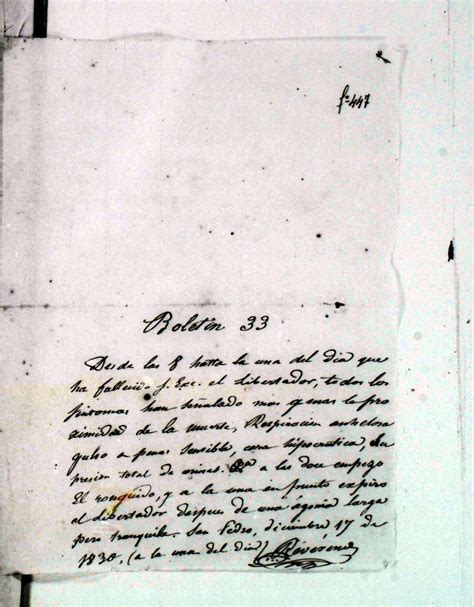 fo 447
Boletin 33
Desde las 8 hasta la una del dia que
ha fallecido S. Exc. el Libertador, todos los
sintomas han señalado mas y mas la pro
ximidad de la muerte, Respiracion anhelosa
pulso a penas sensible, cara hipocratica, su
presion total de orines. a las doce empezo
El ronquido, y a la una en punto expiro
el Libertador despues de una agonia larga
pero tranquila. San Pedro, diciembre 17 de
1830, (a la una del dia) Réverend